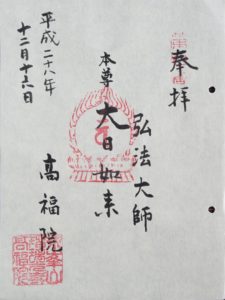 奉拝
弘法大師
本尊 大日如来
高福院
平成二十八年
十二月十六日